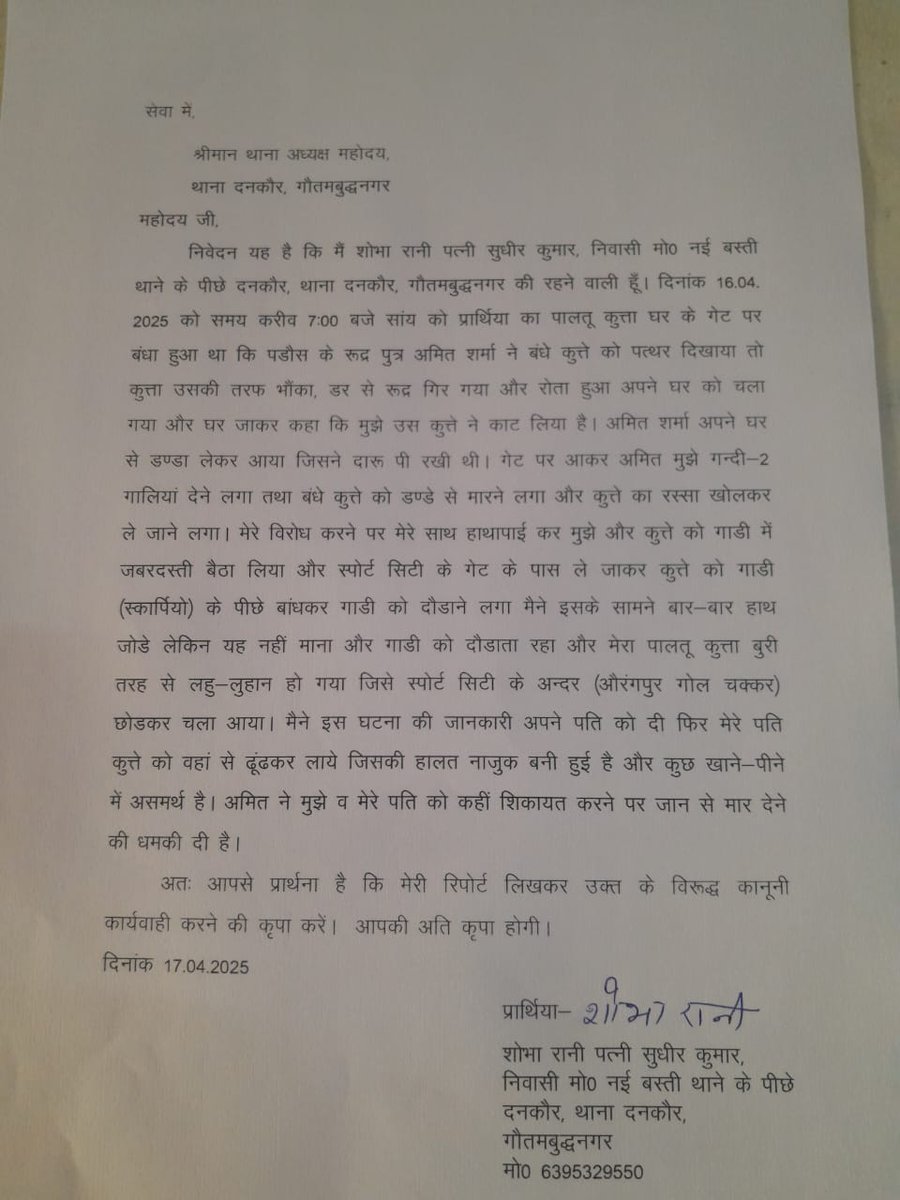 सेवा में,
श्रीमान थाना अध्यक्ष महोदय,
थाना दनकौर, गौतमबुद्धनगर
महोदय जी,
निवेदन यह है कि मैं शोभा रानी पत्नी सुधीर कुमार, निवासी मो0 नई बस्ती
थाने के पीछे दनकौर, थाना दनकौर, गौतमबुद्धनगर की रहने वाली हूँ। दिनांक 16.04.
2025 को समय करीव 7:00 बजे सांय को प्रार्थिया का पालतू कुत्ता घर के गेट पर
बंधा हुआ था कि पडौस के रूद्र पुत्र अमित शर्मा ने बंधे कुत्ते को पत्थर दिखाया तो
कुत्ता उसकी तरफ भौंका, डर से रूद्र गिर गया और रोता हुआ अपने घर को चला
गया और घर जाकर कहा कि मुझे उस कुत्ते ने काट लिया है। अमित शर्मा अपने घर
से डण्डा लेकर आया जिसने दारू पी रखी थी। गेट पर आकर अमित मुझे गन्दी-2
गालियां देने लगा तथा बंधे कुत्ते को डण्डे से मारने लगा और कुत्ते का रस्सा खोलकर
ले जाने लगा। मेरे विरोध करने पर मेरे साथ हाथापाई कर मुझे और कुत्ते को गाडी में
जबरदस्ती बैठा लिया और स्पोर्ट सिटी के गेट के पास ले जाकर कुत्ते को गाडी
(स्कार्पियो) के पीछे बांधकर गाडी को दौडाने लगा मैने इसके सामने बार–बार हाथ
जोडे लेकिन यह नहीं माना और गाडी को दौडाता रहा और मेरा पालतू कुत्ता बुरी
तरह से लहु–लुहान हो गया जिसे स्पोर्ट सिटी के अन्दर (औरंगपुर गोल चक्कर)
छोडकर चला आया। मैने इस घटना की जानकारी अपने पति को दी फिर मेरे पति
कुत्ते को वहां से ढूंढकर लाये जिसकी हालत नाजुक बनी हुई है और कुछ खाने–पीने
में असमर्थ है। अमित ने मुझे व मेरे पति को कहीं शिकायत करने पर जान से मार देने
की धमकी दी है।
अतः आपसे प्रार्थना है कि मेरी रिपोर्ट लिखकर उक्त के विरूद्ध कानूनी
कार्यवाही करने की कृपा करें। आपकी अति कृपा होगी।
दिनांक 17.04.2025
प्रार्थिया– शोभा रानी
शोभा रानी पत्नी सुधीर कुमार,
निवासी मो0 नई बस्ती थाने के पीछे
दनकौर, थाना दनकौर,
गौतमबुद्धनगर
मो0 6395329550